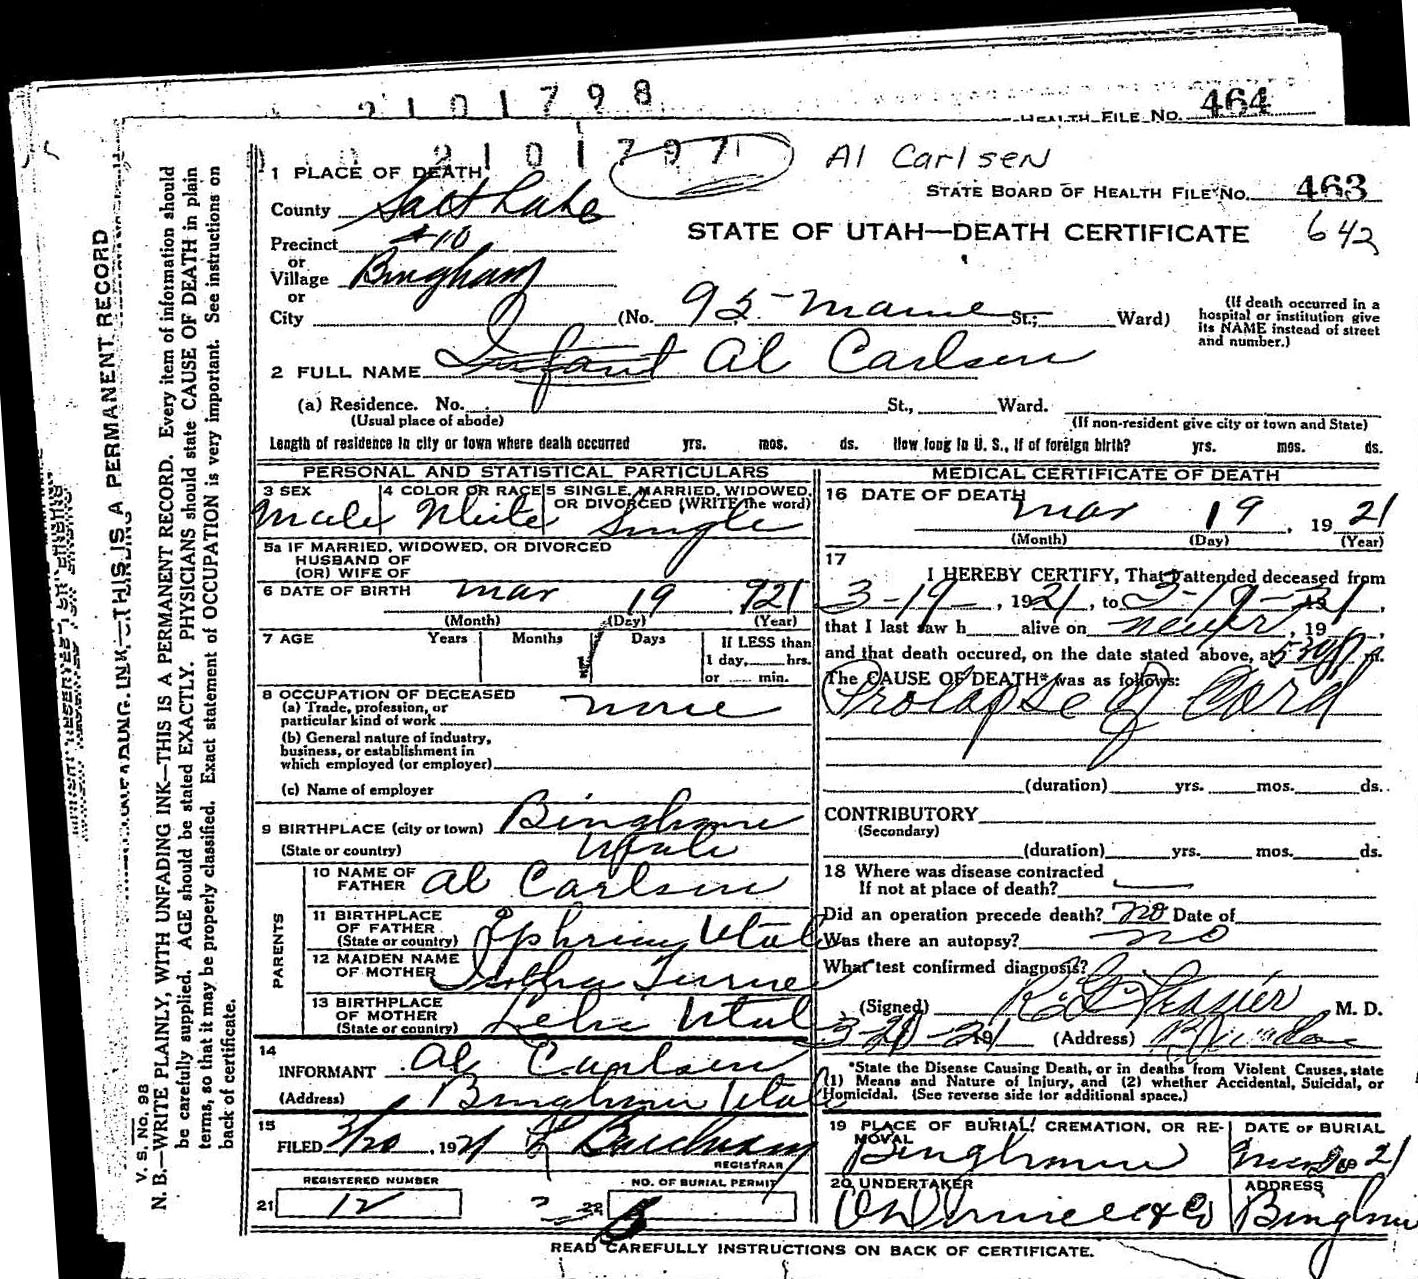 2101798
HEALTH FILE NO. 464
2101797 Al Carlsen
STATE BOARD OF HEALTH FILE NO. 463
STATE OF UTAH—DEATH CERTIFICATE 642
1 PLACE OF DEATH
County Salt Lake
Precinct #10
or
Village Bingham
or
City (No. 95 Maine St.; Ward)
(If death occurred in a
hospital or institution give
its NAME instead of street
and number.)
2 FULL NAME Infant Al Carlsen
(a) Residence. No. St., Ward.
(Usual place of abode) (If non-resident give city or town and State)
Length of residence in city or town where death occurred yrs. mos. ds. How long in U. S., if of foreign birth? yrs. mos. ds.
PERSONAL AND STATISTICAL PARTICULARS
3 SEX 4 COLOR OR RACE 5 SINGLE, MARRIED, WIDOWED,
OR DIVORCED (WRITE the word)
Male White Single
5a IF MARRIED, WIDOWED, OR DIVORCED
HUSBAND OF
(OR) WIFE OF
6 DATE OF BIRTH Mar 19 921
(Month) (Day) (Year)
7 AGE Years Months Days If LESS than
1 day, hrs.
or min.
8 OCCUPATION OF DECEASED
(a) Trade, profession, or
particular kind of work none
(b) General nature of industry,
business, or establishment in
which employed (or employer)
(c) Name of employer
9 BIRTHPLACE (city or town) Bingham
(State or country) Utah
PARENTS
10 NAME OF
FATHER Al Carlsen
11 BIRTHPLACE
OF FATHER
(State or country) Ephriam Utah
12 MAIDEN NAME
OF MOTHER Turner
13 BIRTHPLACE
OF MOTHER
(State or country) Lehi Utah
14
INFORMANT Al Carlsen
(Address) Bingham Utah
15
FILED 3/20, 1921
REGISTRAR
REGISTERED NUMBER NO. OF BURIAL PERMIT
21 12 22
MEDICAL CERTIFICATE OF DEATH
16 DATE OF DEATH
Mar 19, 1921
(Month) (Day) (Year)
17
I HEREBY CERTIFY, That I attended deceased from
3-19-, 1921, to 3-19-21,
that I last saw h alive on never, 19 ,
and that death occured, on the date stated above, at 530 P m.
The CAUSE OF DEATH* was as follows:
Prolapse of Cord
(duration) yrs. mos. ds.
CONTRIBUTORY
(Secondary)
(duration) yrs. mos. ds.
18 Where was disease contracted
If not at place of death?
Did an operation precede death? no Date of
Was there an autopsy? no
What test confirmed diagnosis?
(Signed) Frazier M. D.
3-20-21 (Address) Bingham
*State the Disease Causing Death, or in deaths from Violent Causes, state
(1) Means and Nature of Injury, and (2) whether Accidental, Suicidal, or
Homicidal. (See reverse side for additional space.)
19 PLACE OF BURIAL, CREMATION, OR RE-
MOVAL
Bingham
DATE OF BURIAL
21
20 UNDERTAKER ADDRESS
& Co Bingham
READ CAREFULLY INSTRUCTIONS ON BACK OF CERTIFICATE.
V. S. No. 98
N. B.—WRITE PLAINLY, WITH UNFADING INK—THIS IS A PERMANENT RECORD. Every item of information should
be carefully supplied. AGE should be stated EXACTLY. PHYSICIANS should state CAUSE OF DEATH in plain
terms, so that it may be properly classified. Exact statement of OCCUPATION is very important. See instructions on
back of certificate.
UNFADING INK—THIS IS A PERMANENT RECORD